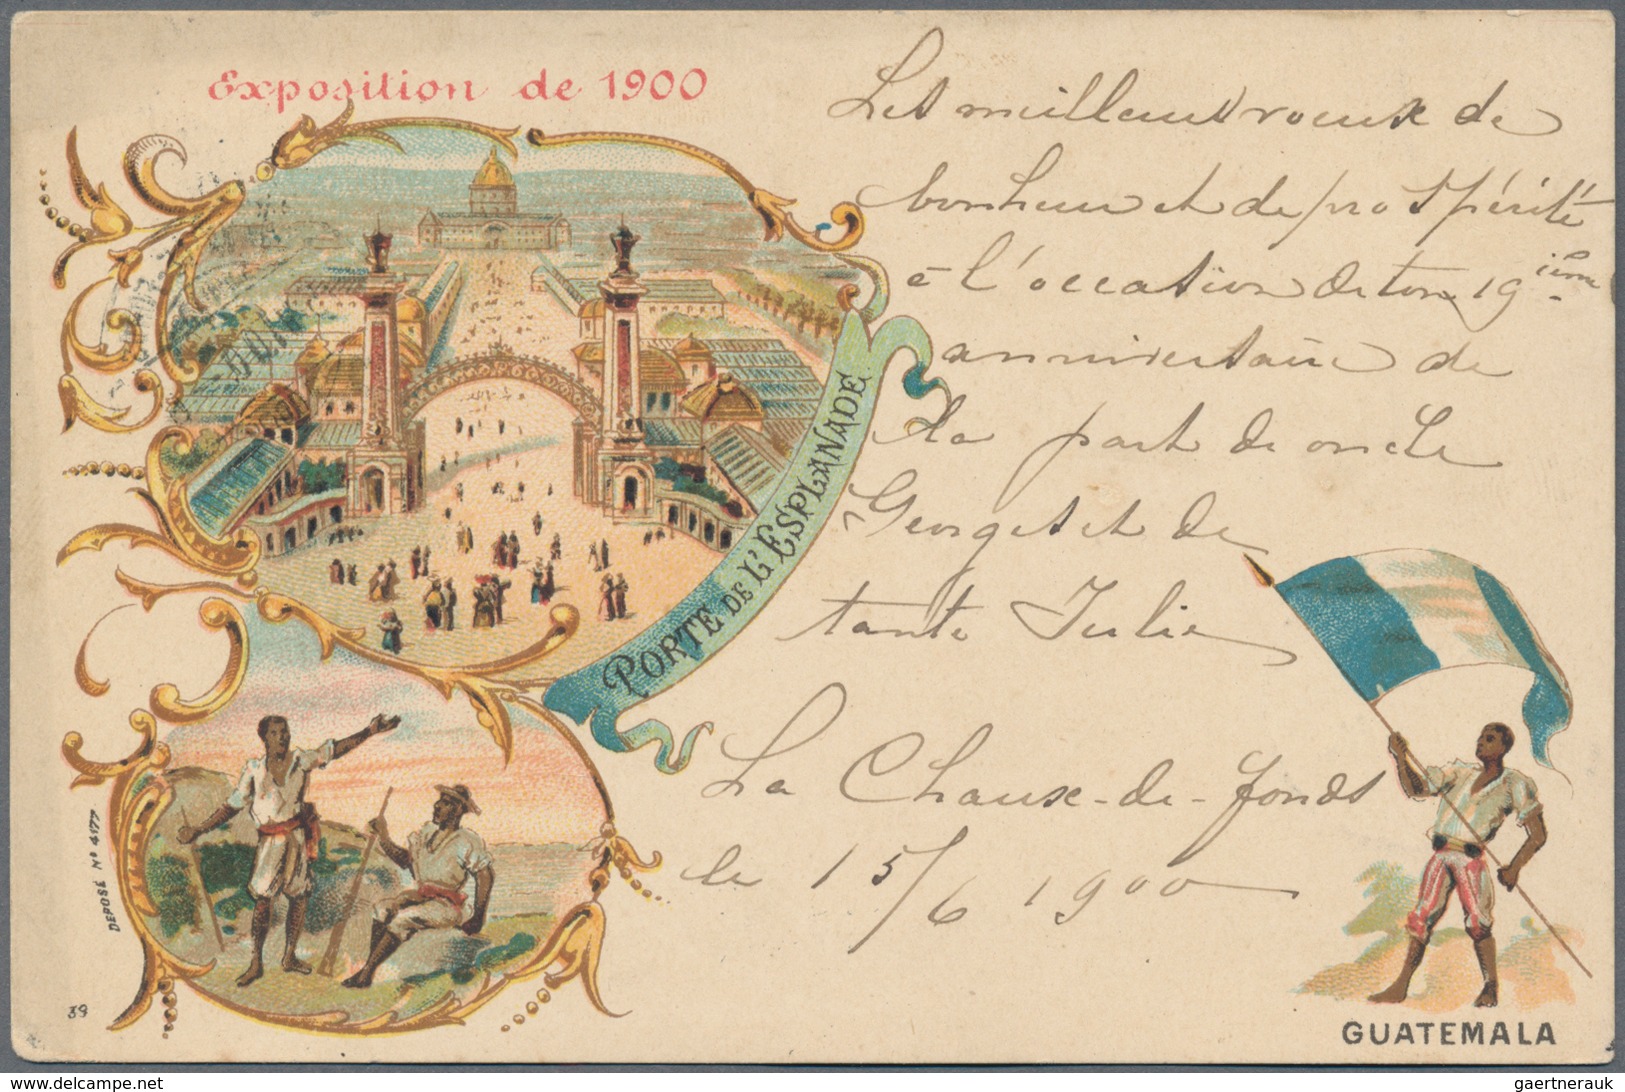 Exposition de 1900
Les meilleurs voeux de
bonheur et de prospérité
à l'occasion de ton 19ième
anniversaire de
la part de oncle
Georges et de
tante Julie
La Chaux-de-fonds
le 15/6 1900
PORTE DE L'ESPLANADE
DEPOSÉ No 4177
39
GUATEMALA
© www.delcampe.net
gaertnerauk